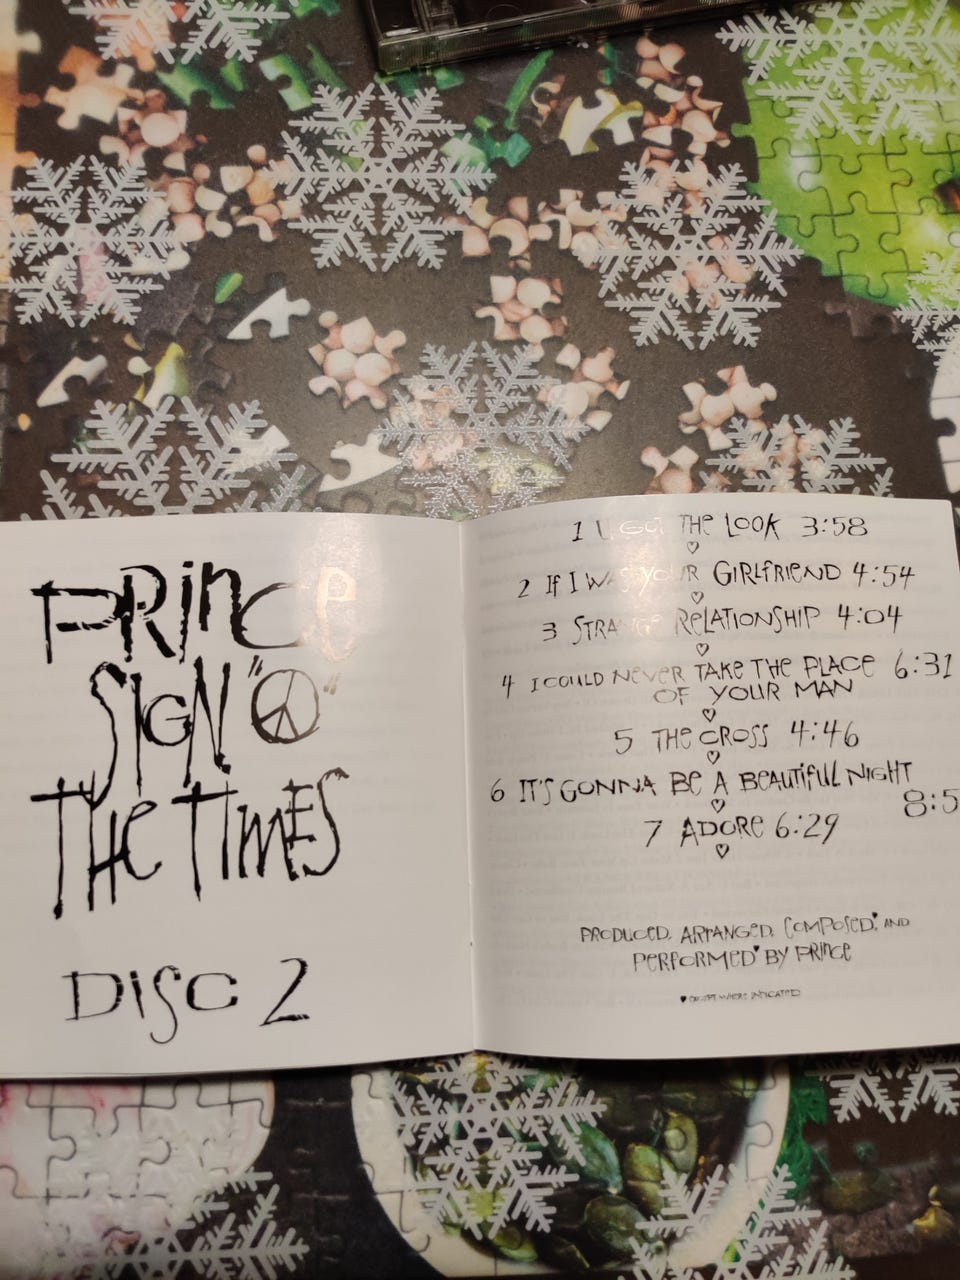 PRINCE
SIGN "☮"
THE TIMES
DISC 2
1 U GOT THE LOOK 3:58
♡
2 If I WAS YOUR GIRLFRIEND 4:54
♡
3 STRANGE RELATIONSHIP 4:04
♡
4 I COULD NEVER TAKE THE PLACE 6:31
OF YOUR MAN
♡
5 THE CROSS 4:46
♡
6 IT'S GONNA BE A BEAUTIFUL NIGHT
8:5
♡
7 ADORE 6:29
♡
PRODUCED, ARRANGED, COMPOSED♥ AND
PERFORMED♥ BY PRINCE
♥ EXCEPT WHERE INDICATED